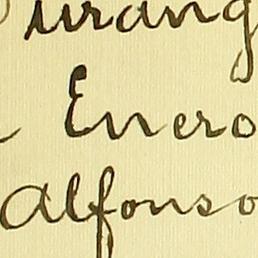 Durang
Enero
Alfonso